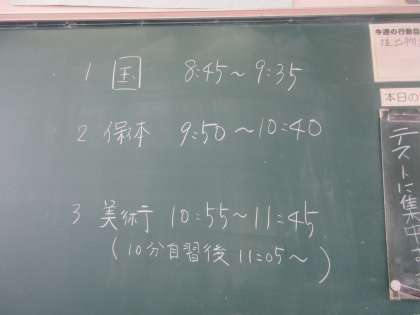 1 国 8:45～9:35
2 保体 9:50～10:40
3 美術 10:55～11:45
(10分自習後 11:05～ )
今週の行動目
提出物
本日の
テストに集中